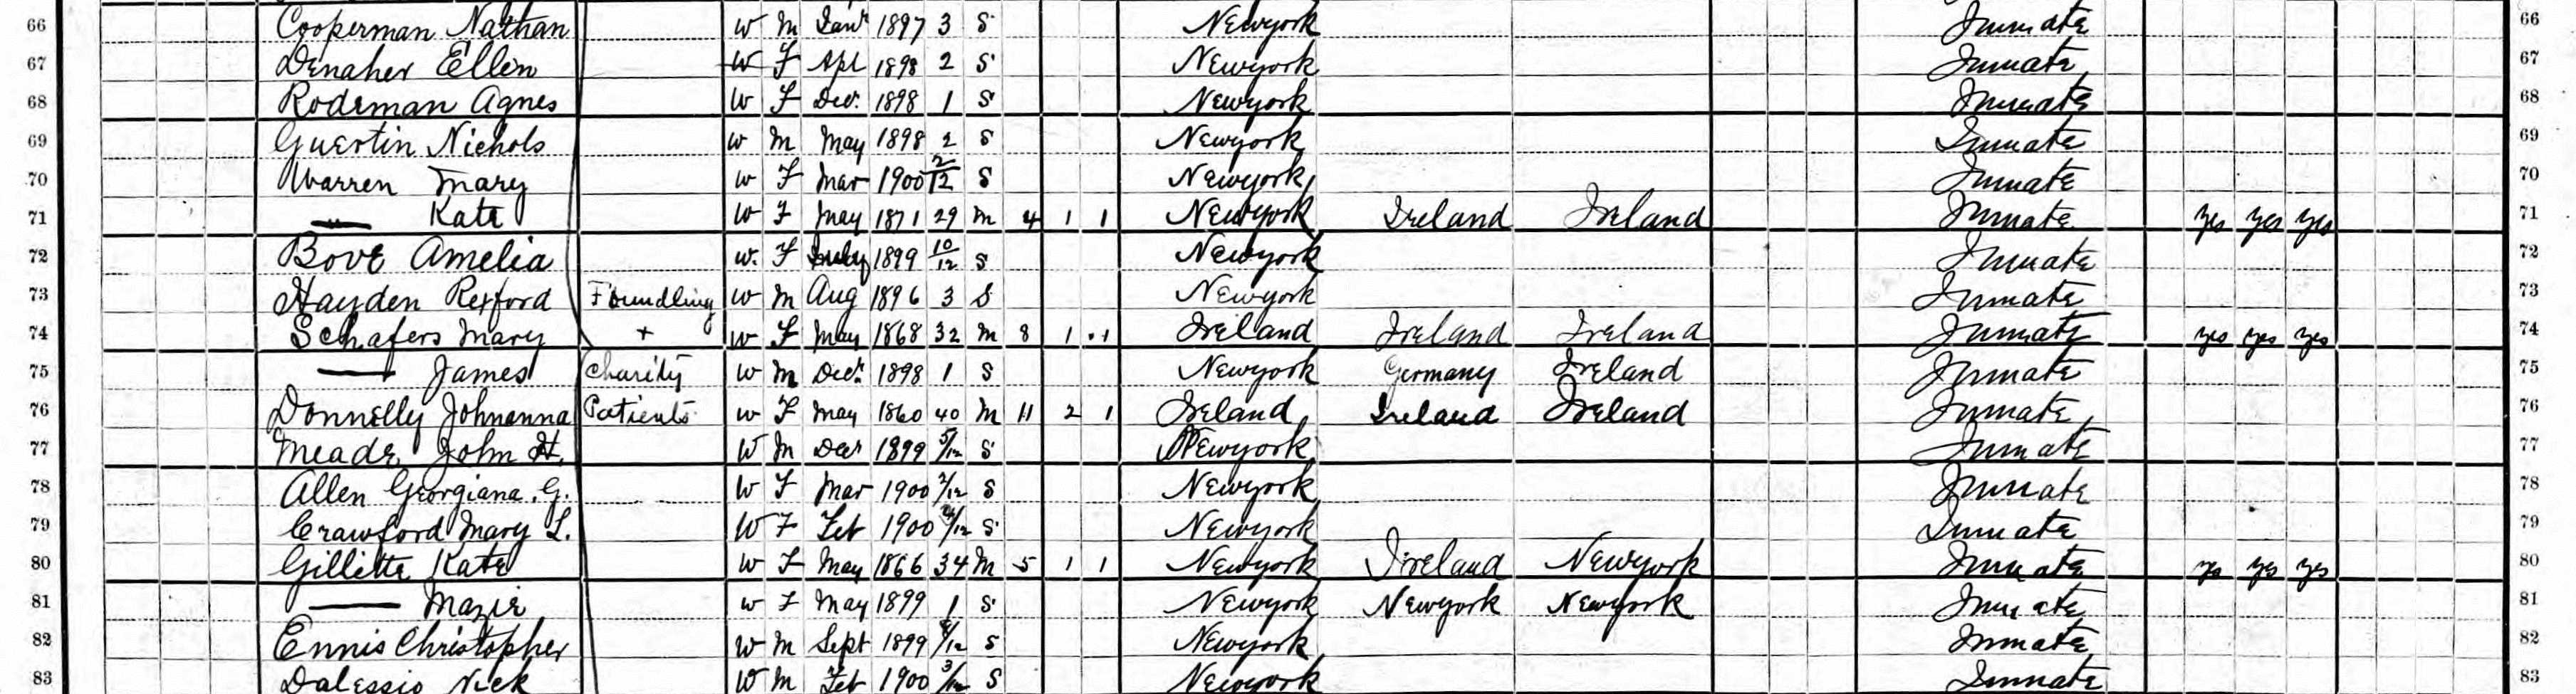 66 Cooperman Nathan W M Jan 1897 3 S Newyork Inmate 66
67 Denaher Ellen W F Apl 1898 2 S Newyork Inmate 67
68 Rodeman Agnes W F Dec. 1898 1 S Newyork Inmate 68
69 Guertin Nichols W M May 1898 2 S Newyork Inmate 69
70 Warren Mary W F Mar 1900 2/12 S Newyork Inmate 70
71 — Kate W F May 1871 29 M 4 1 1 Newyork Ireland Ireland Inmate yes yes yes 71
72 Bove Amelia W. F July 1899 10/12 S Newyork Inmate 72
73 Hayden Rexford Foundling W M Aug 1896 3 S Newyork Inmate 73
74 Schafers Mary + W F May 1868 32 M 8 1 1 Ireland Ireland Ireland Inmate yes yes yes 74
75 — James Charity W M Dec. 1898 1 S Newyork Germany Ireland Inmate 75
76 Donnelly Johnanna Patients W F May 1860 40 M 11 2 1 Ireland Ireland Ireland Inmate 76
77 Meade John H. W M Dec 1899 5/12 S Newyork Inmate 77
78 Allen Georgiana. G. W F Mar 1900 2/12 S Newyork Inmate 78
79 Crawford Mary L. W F Feb 1900 S Newyork Inmate 79
80 Gillette Kate W F May 1866 34 M 5 1 1 Newyork Ireland Newyork Inmate yes yes yes 80
81 — Mazie W F May 1899 1 S Newyork Newyork Newyork Inmate 81
82 Ennis Christopher W M Sept 1899 8/12 S Newyork Inmate 82
83 Dalessio Nick W M Feb 1900 3/12 S Newyork Inmate 83